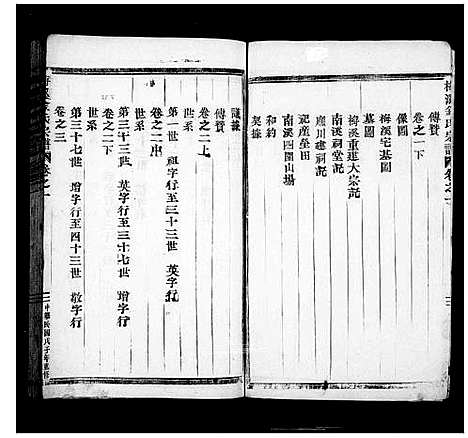 傳贊
卷之一下
像圖
梅溪宅墓圖
傳贊
梅溪重建大宗記
南溪祠堂記
應川建祠記
祀產塋田
南溪四圍山場
和約
契據
議據
卷之二上
世系
第一世 祖字行至三十三世 英字行
卷之二中
世系
第三十三世 英字行至三十七世 增字行
卷之二下
世系
第三十七世 增字行至四十三世 敬字行
卷之三
中華民國戊子年重修